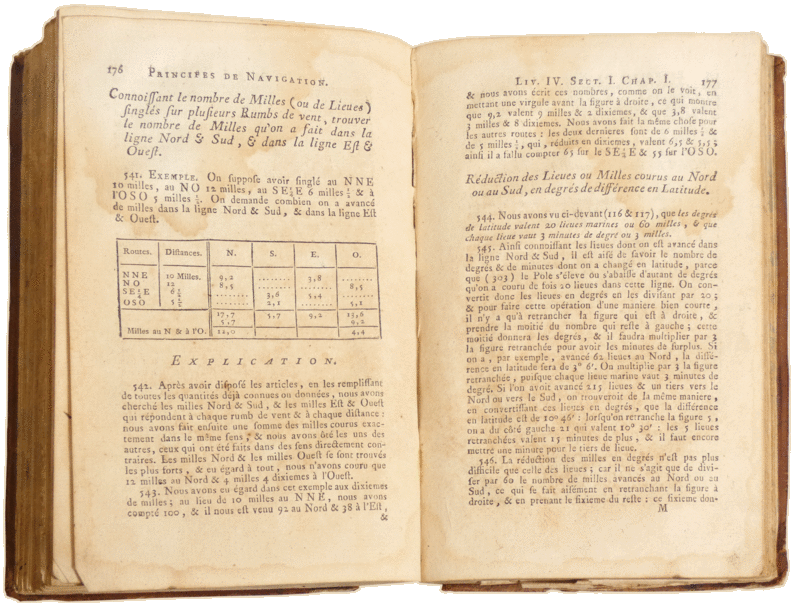 176 PRINCIPES DE NAVIGATION.
Connoiſſant le nombre de Milles (ou de Lieues)
ſinglés ſur pluſieurs Rumbs de vent, trouver
le nombre de Milles qu'on a fait dans la
ligne Nord & Sud, & dans la ligne Eſt &
Oueſt.
541. EXEMPLE. On ſuppoſe avoir ſinglé au NNE
10 milles, au NO 12 milles, au SE¼E 6 milles ½ & à
l'OSO 5 milles ½. On demande combien on a avancé
de milles dans la ligne Nord & Sud, & dans la ligne Eſt
& Oueſt.
Routes. Diſtances. N. S. E. O.
NNE 10 Milles. 9,2 ........ 3,8
NO 12 8,5 ........ ........ 8,5
SE¼E 6 ½ ........ 3,6 5,4 ........
OSO 5 ½ ........ 2,1 ........ 5,1
17,7 5,7 9,2 13,6
5,7 9,2
Milles au N & à l'O. 12,0 4,4
EXPLICATION.
542. Après avoir diſpoſé les articles, en les rempliſſant
de toutes les quantités déja connues ou données, nous avons
cherché les milles Nord & Sud, & les milles Eſt & Oueſt
qui répondent à chaque rumb de vent & à chaque diſtance:
nous avons fait enſuite une ſomme des milles courus exac-
tement dans le même ſens, & nous avons ôté les uns des
autres, ceux qui ont été faits dans des ſens directement con-
traires. Les milles Nord & les milles Oueſt ſe ſont trouvés
les plus forts, & eu égard à tout, nous n'avons couru que
12 milles au Nord & 4 milles 4 dixiemes à l'Oueſt.
543. Nous avons eu égard dans cet exemple aux dixiemes
de milles; au lieu de 10 milles au NNE, nous avons
compté 100, & il nous eſt venu 92 au Nord & 38 à l'Eſt,
&
LIV. IV. SECT. I. CHAP. I. 177
& nous avons écrit ces nombres, comme on le voit, en
mettant une virgule avant la figure à droite, ce qui montre
que 9,2 valent 9 milles & 2 dixiemes, & que 3,8 valent
3 milles & 8 dixiemes. Nous avons fait la même choſe pour
les autres routes: les deux dernieres ſont de 6 milles ½ &
de 5 milles ½, qui, réduits en dixiemes, valent 6,5 & 5,5;
ainſi il a fallu compter 65 ſur le SE¼E & 55 ſur l'OSO.
Réduction des Lieues ou Milles courus au Nord
ou au Sud, en degrés de différence en Latitude.
544. Nous avons vu ci-devant (116 & 117), que les degrés
de latitude valent 20 lieues marines ou 60 milles, & que
chaque lieue vaut 3 minutes de degré ou 3 milles.
545. Ainſi connoiſſant les lieues dont on eſt avancé dans
la ligne Nord & Sud, il eſt aiſé de ſavoir le nombre de
degrés & de minutes dont on a changé en latitude, parce
que (303) le Pole s'éleve ou s'abaiſſe d'autant de degrés
qu'on a couru de fois 20 lieues dans cette ligne. On con-
vertit donc les lieues en degrés en les diviſant par 20;
& pour faire cette opération d'une maniere bien courte,
il n'y a qu'à retrancher la figure qui eſt à droite, &
prendre la moitié du nombre qui reſte à gauche; cette
moitié donnera les degrés, & il faudra multiplier par 3
la figure retranchée pour avoir les minutes de ſurplus. Si
on a, par exemple, avancé 62 lieues au Nord, la diffé-
rence en latitude ſera de 3° 6'. On multiplie par 3 la figure
retranchée, puiſque chaque lieue marine vaut 3 minutes de
degré. Si l'on avoit avancé 215 lieues & un tiers vers le
Nord ou vers le Sud, on trouveroit de la même maniere,
en convertiſſant ces lieues en degrés, que la différence
en latitude eſt de 10° 46': lorſqu'on retranche la figure 5,
on a du côté gauche 21 qui valent 10° 30': les 5 lieues
retranchées valent 15 minutes de plus, & il faut encore
mettre une minute pour le tiers de lieue.
546. La réduction des milles en degrés n'eſt pas plus
difficile que celle des lieues; car il ne s'agit que de divi-
ſer par 60 le nombre de milles avancés au Nord ou au
Sud, ce qui ſe fait aiſément en retranchant la figure à
droite, & en prenant le ſixieme du reſte; ce ſixieme don-
M